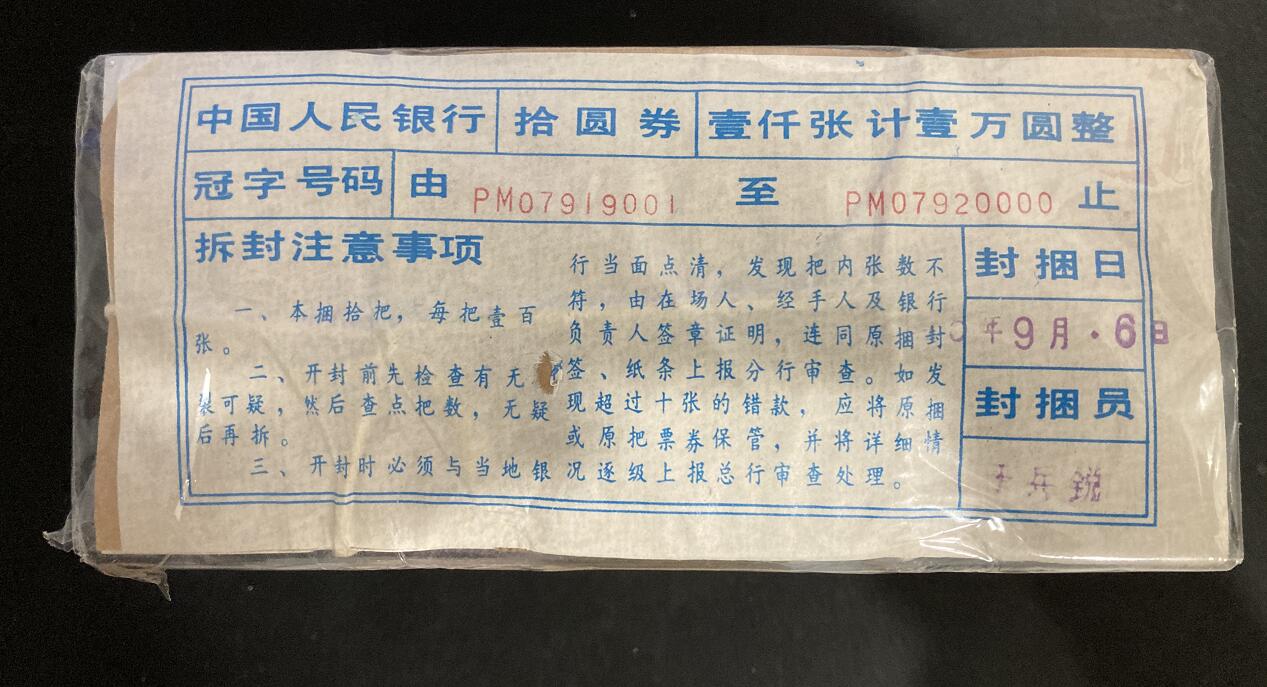 中国人民银行 拾圆券 壹仟张计壹万圆整
冠字号码 由 PM07919001 至 PM07920000 止
拆封注意事项
一、本捆拾把，每把壹百
张。
二、开封前先检查有无
装可疑，然后查点把数，无疑
后再拆。
三、开封时必须与当地银
行当面点清，发现把内张数不
符，由在场人、经手人及银行
负责人签章证明，连同原捆封
签、纸条上报分行审查。如发
现超过十张的错款，应将原捆
或原把票券保管，并将详细情
况逐级上报总行审查处理。
封捆日
年9月·6日
封捆员
兵锐